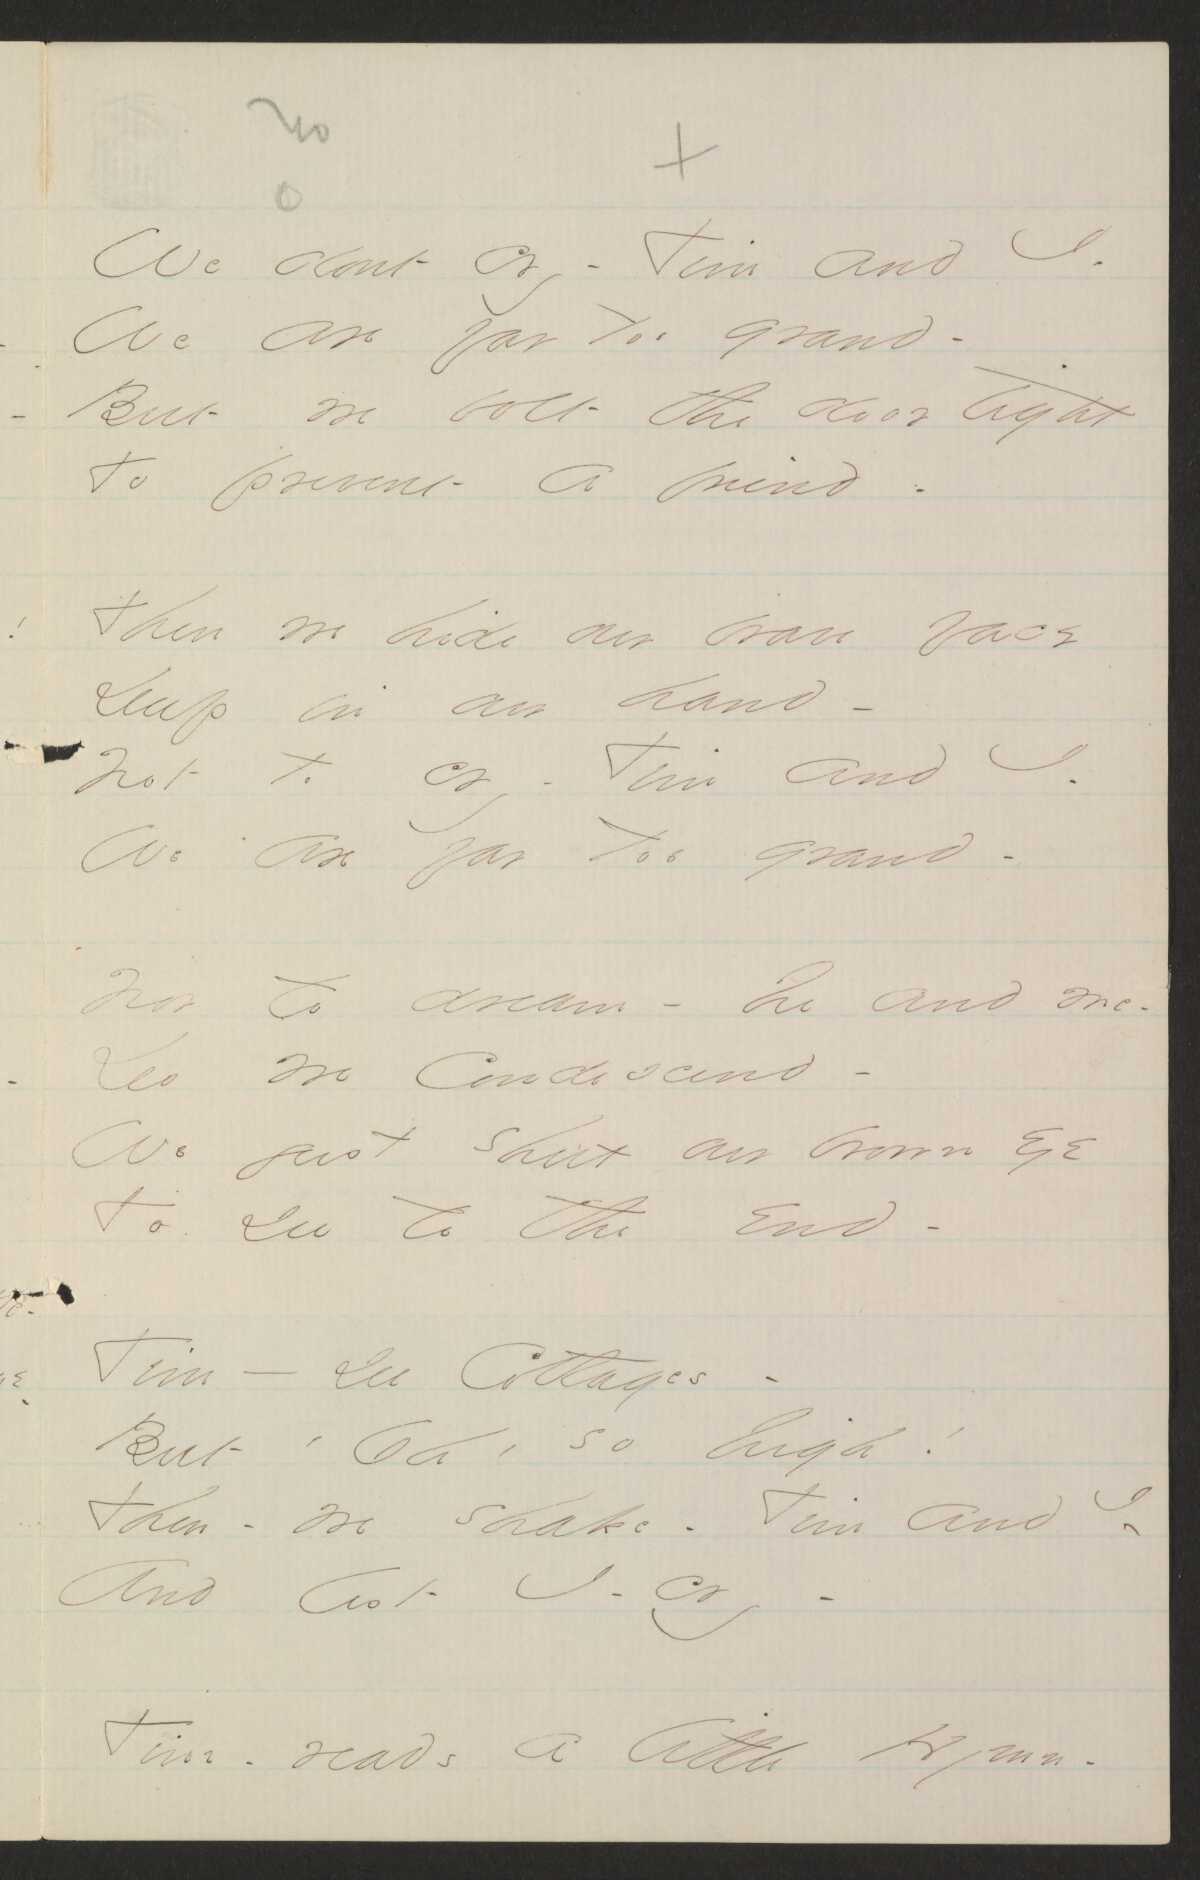 No
0
+
We dont cry - Tim and I.
We are far too grand -
But we bolt the door tight
To prevent a friend -
Then we hide our brave face
Deep in our hand -
Not to cry - Tim and I.
We are far too grand -
Nor to dream - he and me -
Do we condescend -
We just shut our brown eye
To see to the end -
Tim — see Cottages -
But, Oh, so high!
Then - we shake - Tim and I -
And lest I - cry -
Tim - reads a little Hymn -